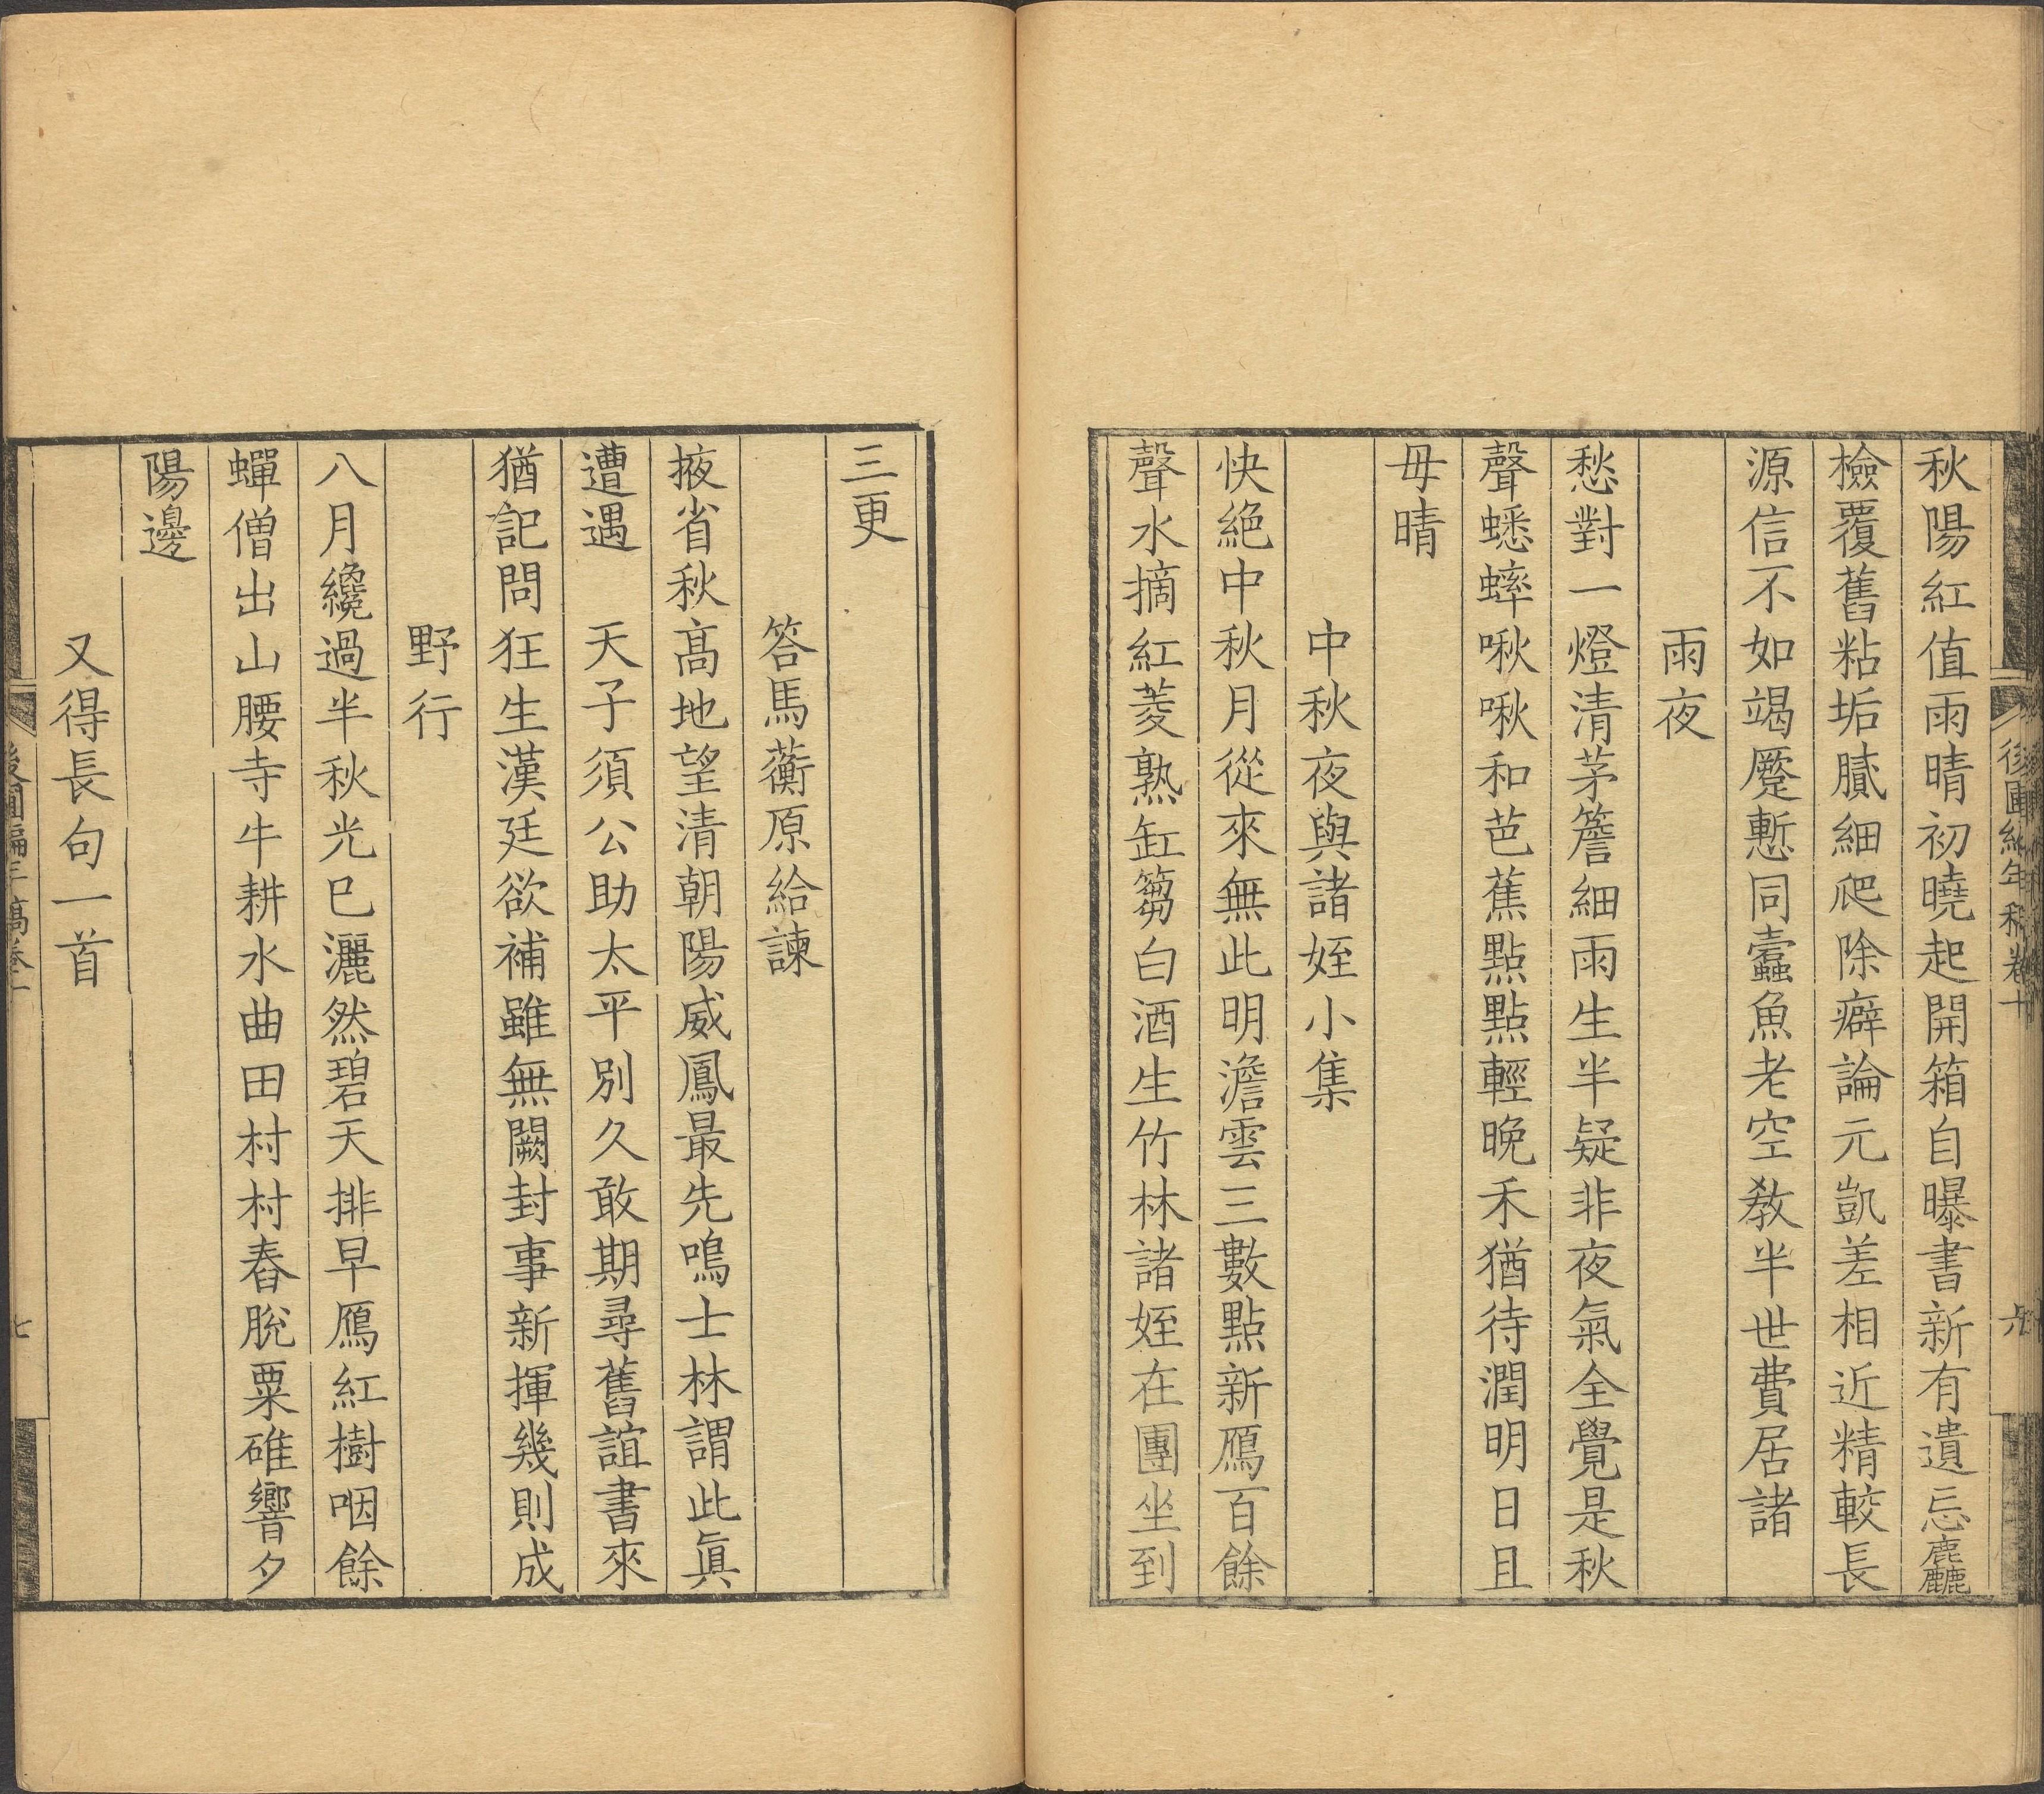 秋陽紅值雨晴初曉起開箱自曝書新有遺忘麤
檢覆舊粘垢膩細爬除癖論元凱差相近精較長
源信不如竭蹷慙同蠹魚老空敎半世費居諸
雨夜
愁對一燈清茅簷細雨生半疑非夜氣全覺是秋
聲蟋蟀啾啾和芭蕉點點輕晚禾猶待潤明日且
毋晴
中秋夜與諸姪小集
快絕中秋月從來無此明澹雲三數點新鴈百餘
聲水摘紅菱熟缸篘白酒生竹林諸姪在團坐到
三更
答馬蘅原給諫
掖省秋高地望清朝陽威鳳最先鳴士林謂此眞
遭遇　天子須公助太平別久敢期尋舊誼書來
猶記問狂生漢廷欲補雖無闕封事新揮幾則成
野行
八月纔過半秋光已灑然碧天排早鴈紅樹咽餘
蟬僧出山腰寺牛耕水曲田村村舂脫粟碓響夕
陽邊
又得長句一首
後圃編年稿卷十
七